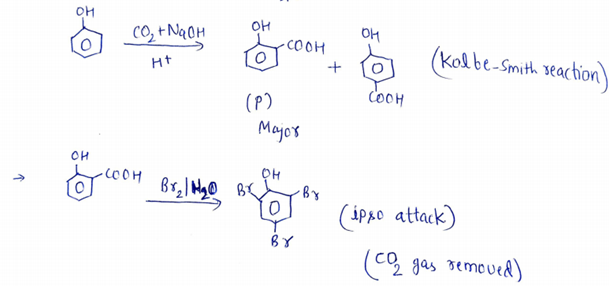 OH
CO₂+NaOH
H+
OH
COOH
+
OH
COOH
(Kolbe-Smith reaction)
(P)
Major
→
OH
COOH
Br₂/H₂O
OH
Br
Br
Br
(ipso attack)
(CO₂ gas removed)